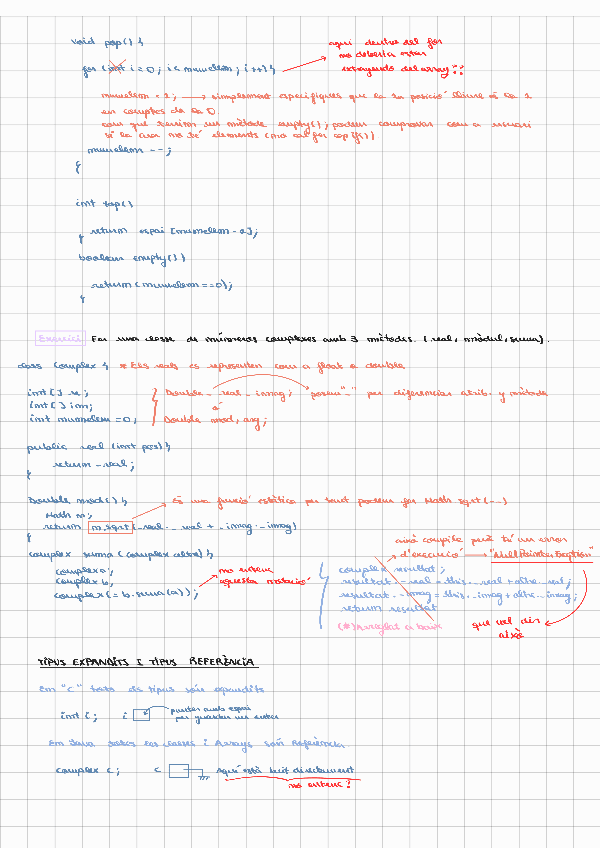 void pop() {
for (int i=0; i<numelem; i++){
aqui dentro del for
no debería estar
extrayendo del array??
numelem = 1; → simplement especifiques que la 1a posició lliure és la 1
en comptes de la 0
com que tenim un mètode empty(); podem comprovar com a usuari
si la cua no té elements (no cal fer cap if)
numelem --;
}
int top()
{ return espai [numelem - 1];
boolean empty()
return (numelem ==0);
}
Exercici Fer una classe de números complexes amb 3 mètodes. (real, mòdul, suma).
class Complex { * Els reals es representen com a float o double
int[] r;
int[] im;
int numelem =0;
Double _real _imag; posem "_" per diferenciar atrib. y mètode
o
Double mod, arg;
public real (int pos) {
return _real;
}
Double mod() {
Math m;
return m.sqrt(_real·_real + _imag·_imag)
}
És una funció estàtica per tant podem fer Math sqrt(--)
complex suma (complex altre) {
complex a;
complex b;
complex c = b.suma(a));
no entenc
aquesta notació
això compila però té un error
d'execució → "NullPointerException"
complex resultat;
resultat._real = this._real + altre._real;
resultat._imag = this._imag + altre._imag;
return resultat
(*) Arreglat a baix
que vol dir
això
TIPUS EXPANDITS I TIPUS REFERÈNCIA
En "C" tots els tipus són expandits
int i; i
puntes amb espai
per guardar un enter
En Java totes les classes i Arrays són Referència
complex c; c Aquí està buit directament
no entenc?